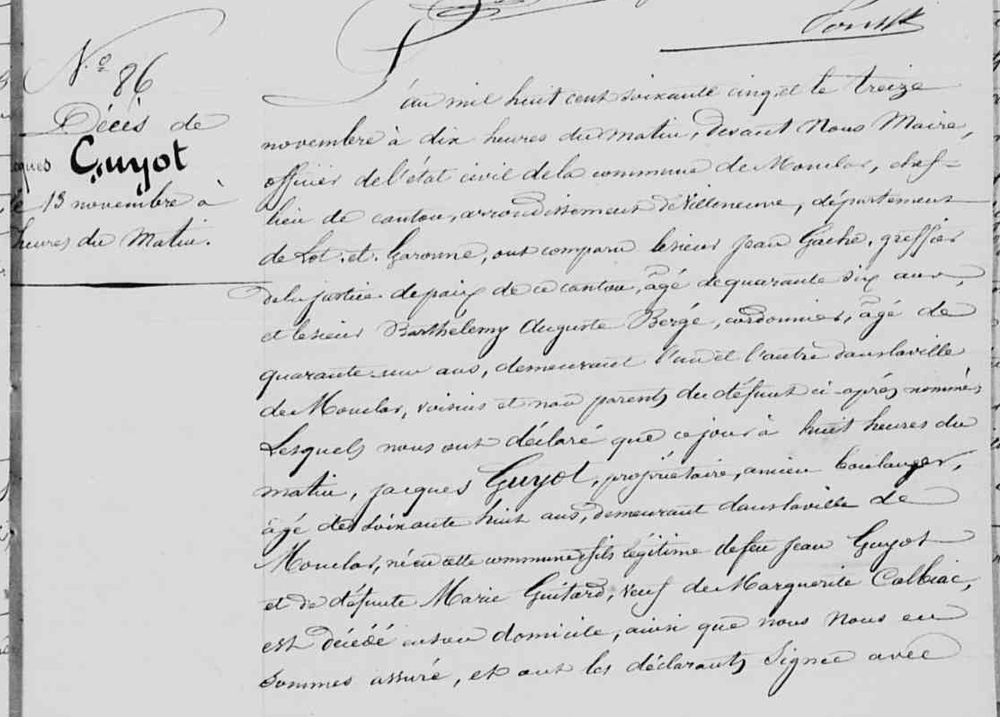 N.º 86
Décès de
Guyot
13 novembre à
heures du Matin.
L'an mil huit cent soixante cinq et le treize
novembre à dix heures du matin, devant Nous Maire,
officier de l'état civil de la commune de Monclar, chef-
lieu de canton, arrondissement de Villeneuve, département
de Lot-et-Garonne, ont comparu le sieur Jean Gache, greffier
de la justice de paix de ce canton, âgé de quarante six ans,
et le sieur Barthélemy Auguste Bergé, cordonnier, âgé de
quarante un ans, demeurant l'un et l'autre dans la ville
de Monclar, voisins et non parents du défunt ci-après nommé;
Lesquels nous ont déclaré que ce jour à huit heures du
matin, Jacques Guyot, propriétaire, ancien boulanger,
âgé de soixante huit ans, demeurant dans la ville de
Monclar, né en cette commune, fils légitime de feu Jean Guyot
et de défunte Marie Guitard, veuf de Marguerite Calbiac,
est décédé en son domicile, ainsi que nous Nous en
sommes assuré, et ont les déclarants signé avec